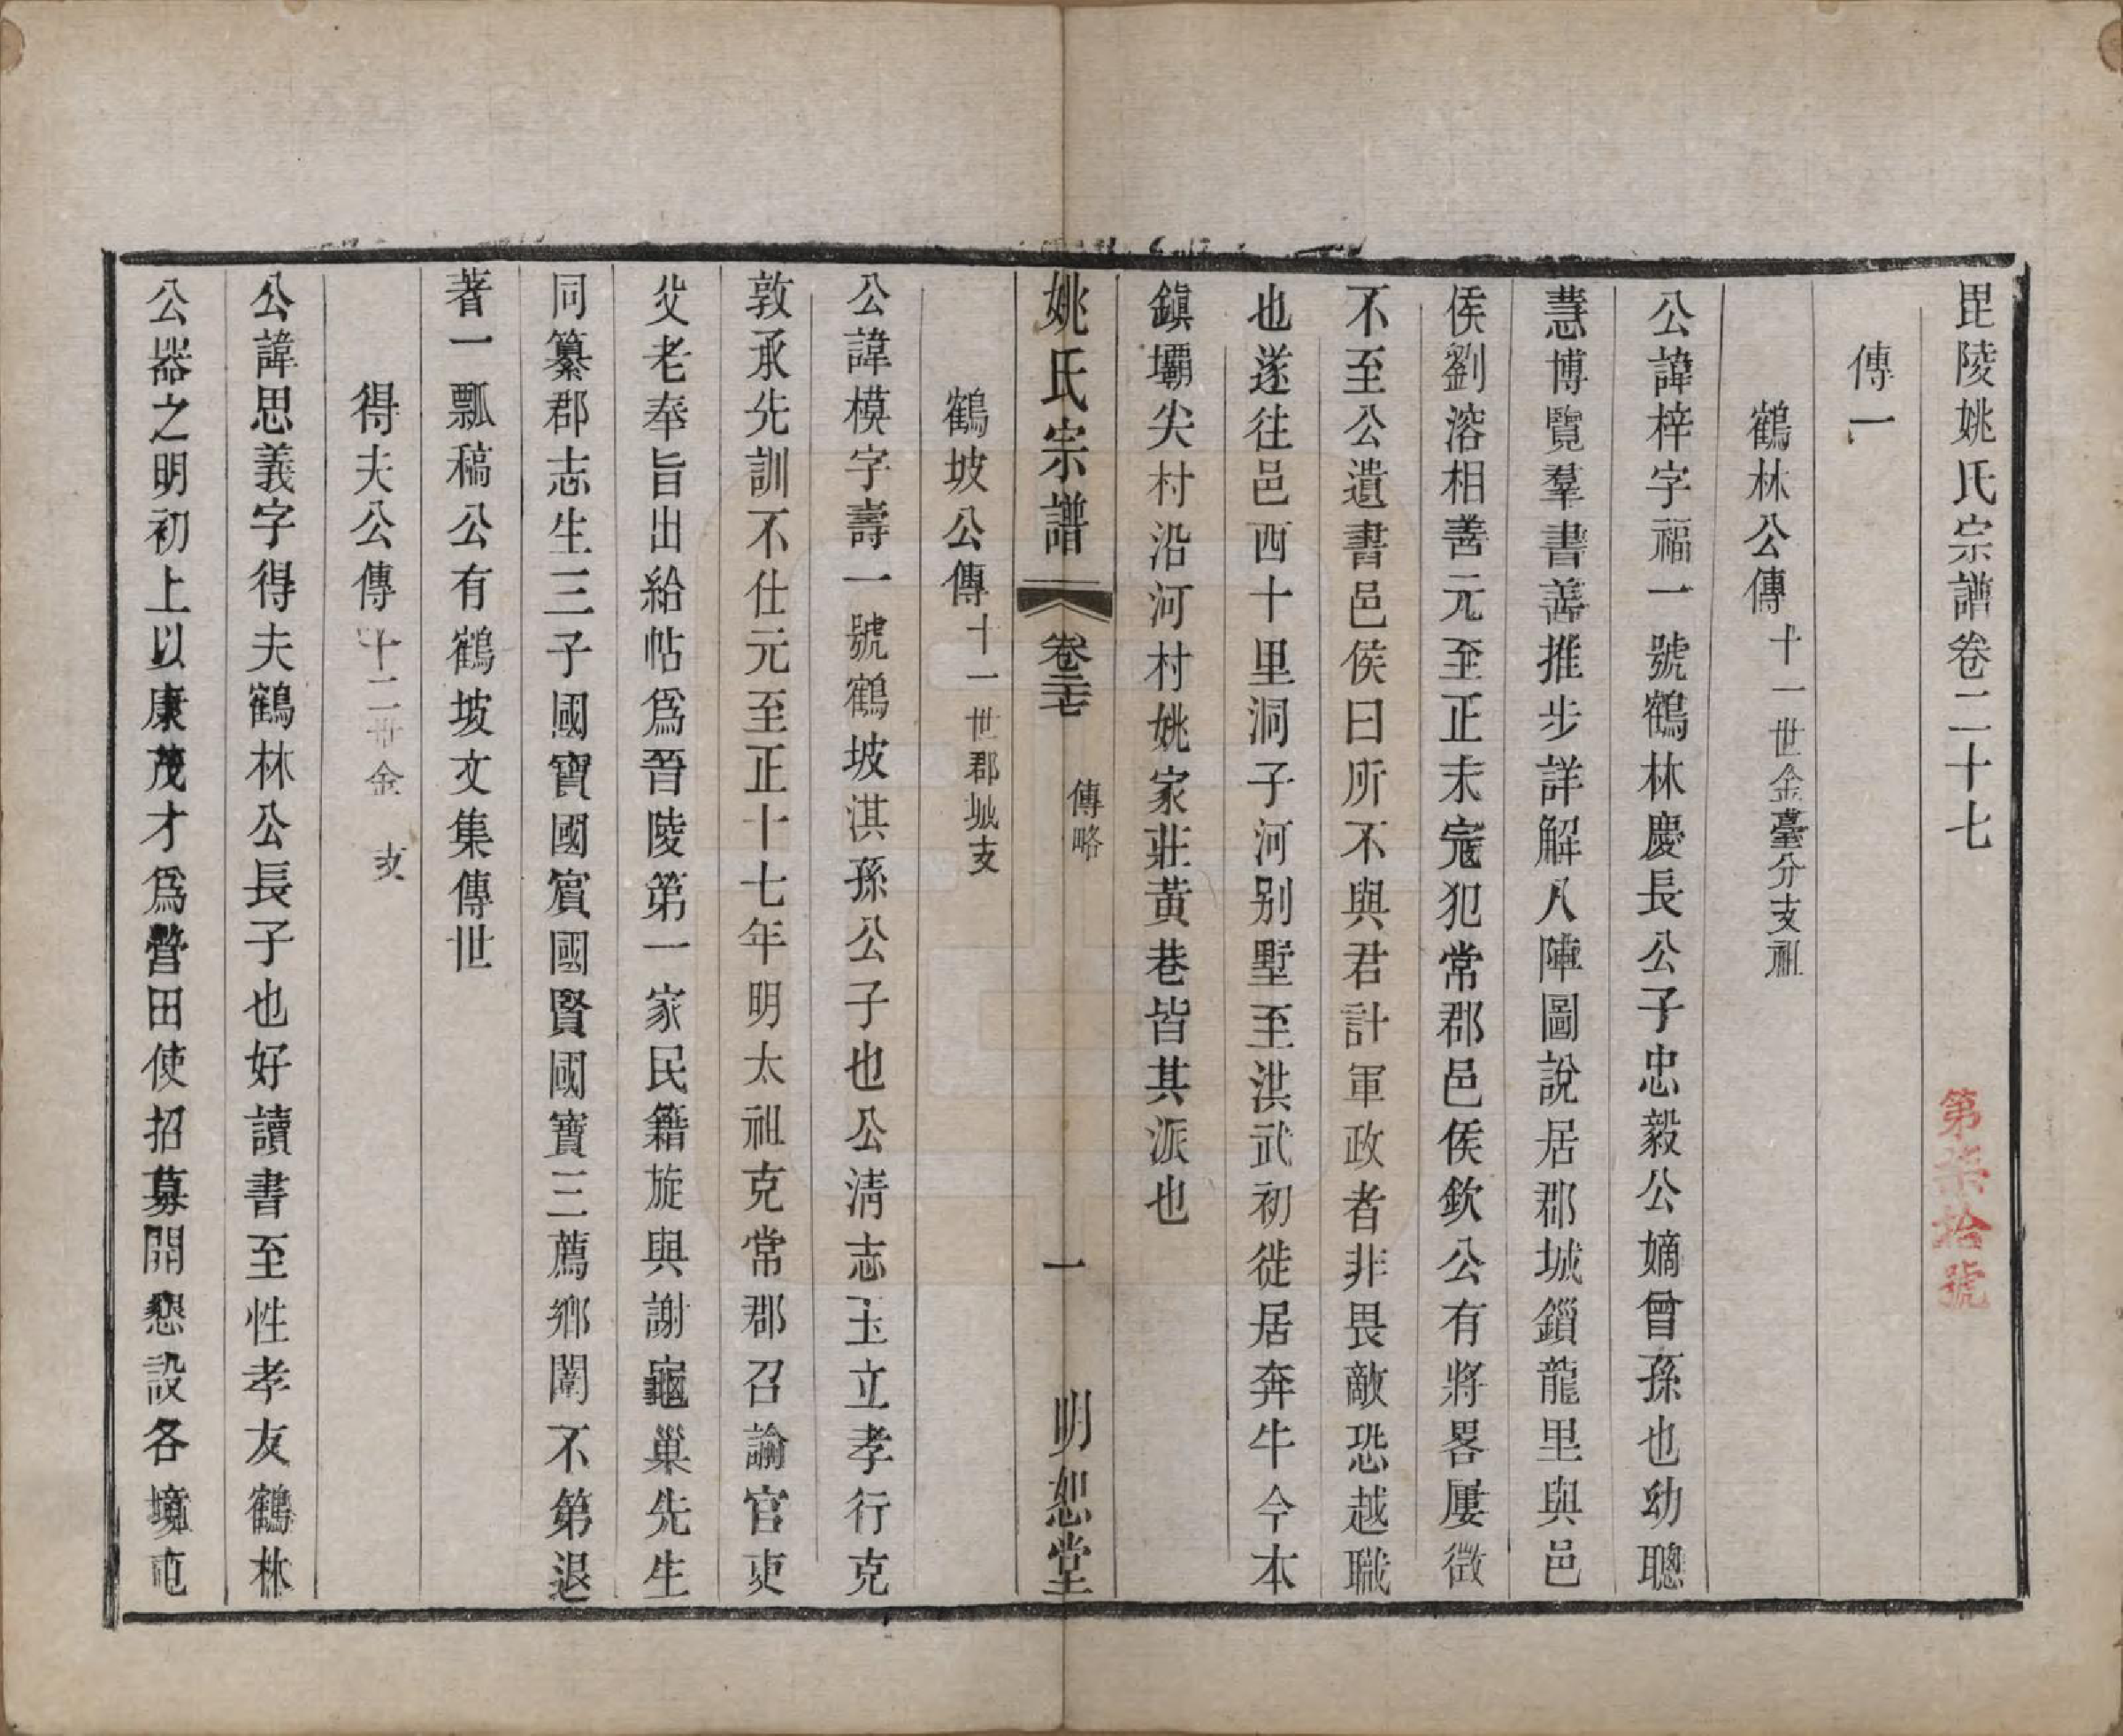 毘陵姚氏宗譜卷二十七
第柒拾號
傳一
鶴林公傳十一世金臺分支祖
公諱梓字福一號鶴林慶長公子忠毅公嫡曾孫也幼聰
慧博覽羣書善推步詳解人陣圖說居郡城鎖龍里與邑
侯劉溶相善元至正末寇犯常郡邑侯欽公有將畧屢徵
不至公遺書邑侯曰所不與君計軍政者非畏敵恐越職
也遂往邑西十里洞子河别墅至洪武初徙居奔牛今本
鎮壩尖村沿河村姚家莊黃巷皆其派也
姚氏宗譜 卷二十七 傳略 一 明恕堂
鶴坡公傳十一世郡城支
公諱模字壽一號鶴坡淇孫公子也公淸志玉立孝行克
敦承先訓不仕元至正十七年明太祖克常郡召諭官吏
父老奉旨出給帖爲晉陵第一家民籍旋與謝龜巢先生
同纂郡志生三子國寶國賓國賢國寶三薦鄉闈不第退
著一瓢稿公有鶴坡文集傳世
得夫公傳十二世金 支
公諱思義字得夫鶴林公長子也好讀書至性孝友鶴林
公器之明初上以康茂才爲營田使招募開懇設各境屯